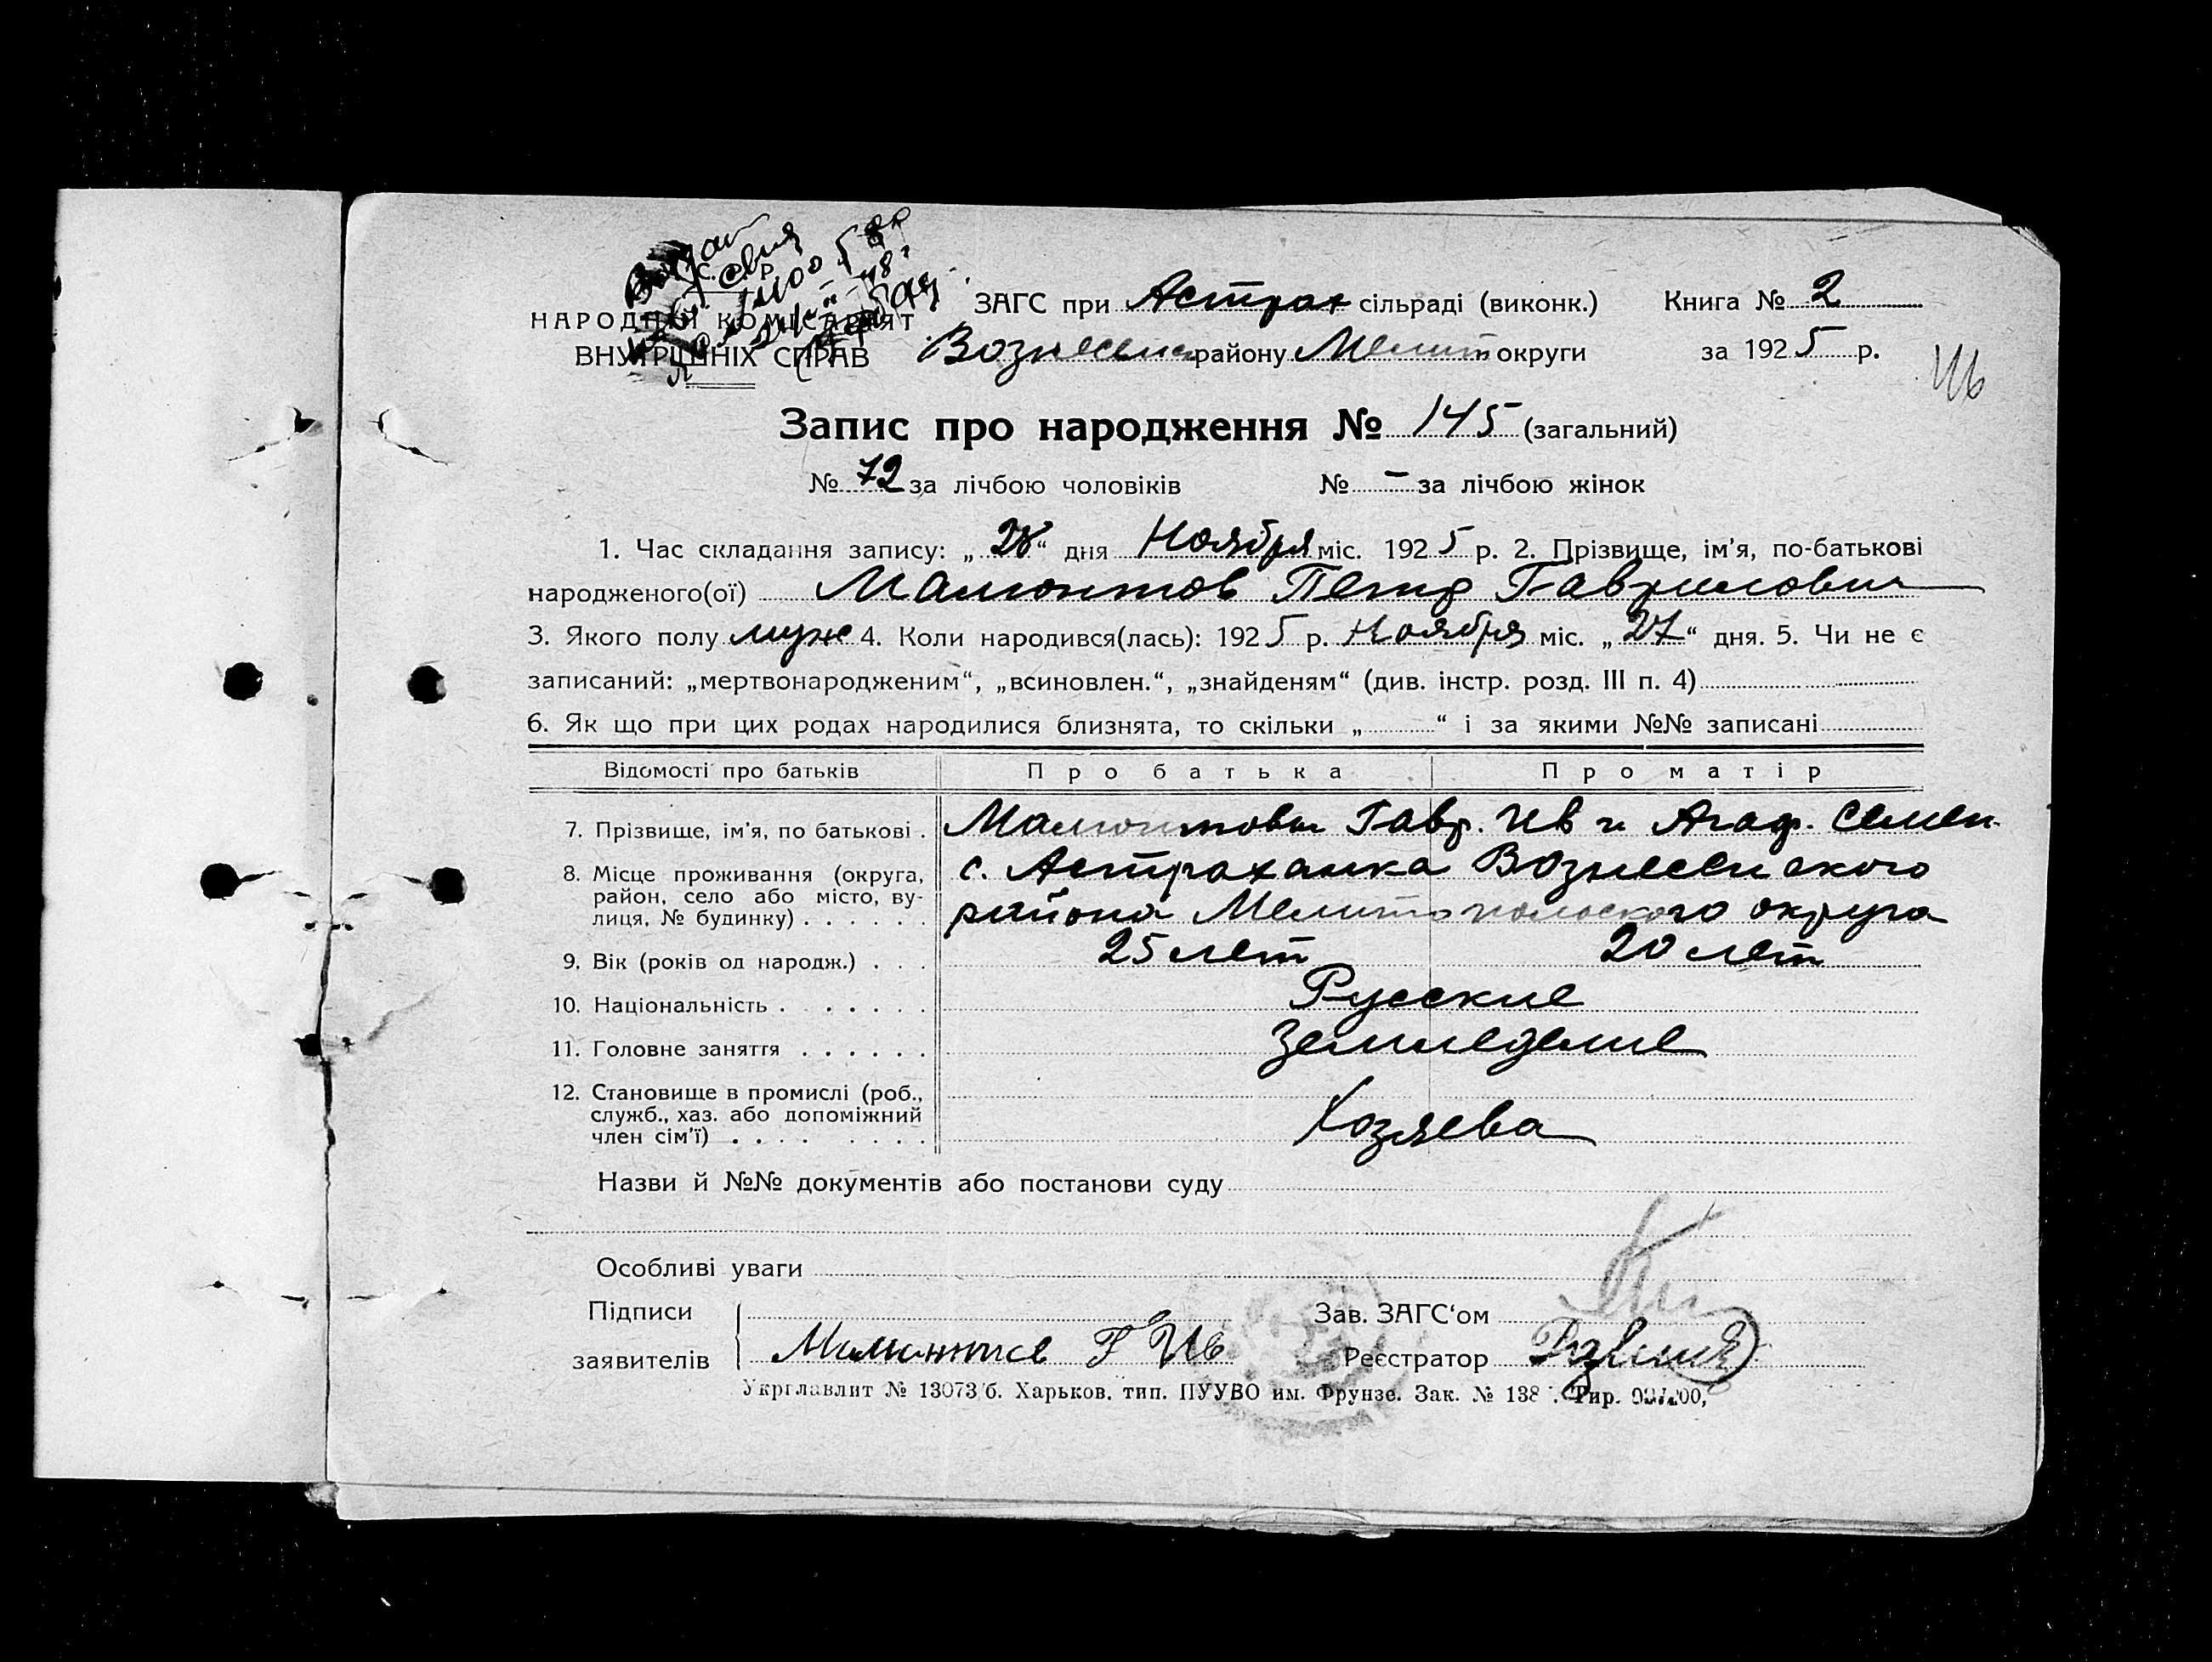 С. Р.
НАРОДНІЙ КОМІСАРІЯТ
ВНУТРІШНІХ СПРАВ
ЗАГС при Астрах сільраді (виконк.) Книга № 2
Вознесенс району Мелит округи за 1925 р.
116
Запис про народження № 145 (загальний)
№ 72 за лічбою чоловіків № – за лічбою жінок
1. Час складання запису: „28“ дня Ноября міс. 1925 р. 2. Прізвище, ім’я, по-батькові
народженого(ої) Мамонтов Петр Гаврилович
3. Якого полу муж 4. Коли народився(лась): 1925 р. Ноября міс. „27“ дня. 5. Чи не є
записаний: „мертвонародженим“, „всиновлен.“, „знайденям“ (див. інстр. розд. III п. 4)
6. Як що при цих родах народилися близнята, то скільки „ “ і за якими №№ записані
Відомості про батьків Про батька Про матір
7. Прізвище, ім’я, по батькові . Мамонтовы Гавр. Ив и Агаф. Семен.
8. Місце проживання (округа, с. Астраханка Вознесенского
район, село або місто, ву-
лиця, № будинку) . . . . . . района Мелитопольского округа
9. Вік (років од народж.) . . . 25 лет 20 лет
10. Національність . . . . . . Русские
11. Головне заняття . . . . . . Земледелие
12. Становище в промислі (роб.,
служб., хаз. або допоміжний
член сім’ї) . . . . . . . . Хозяева
Назви й №№ документів або постанови суду
Особливі уваги
Підписи Зав. ЗАГС‘ом
заявителів Мамонтов Г Ив Реєстратор
Укрглавлит № 13073/б. Харьков. тип. ПУУВО им. Фрунзе. Зак. № 138 Тир.